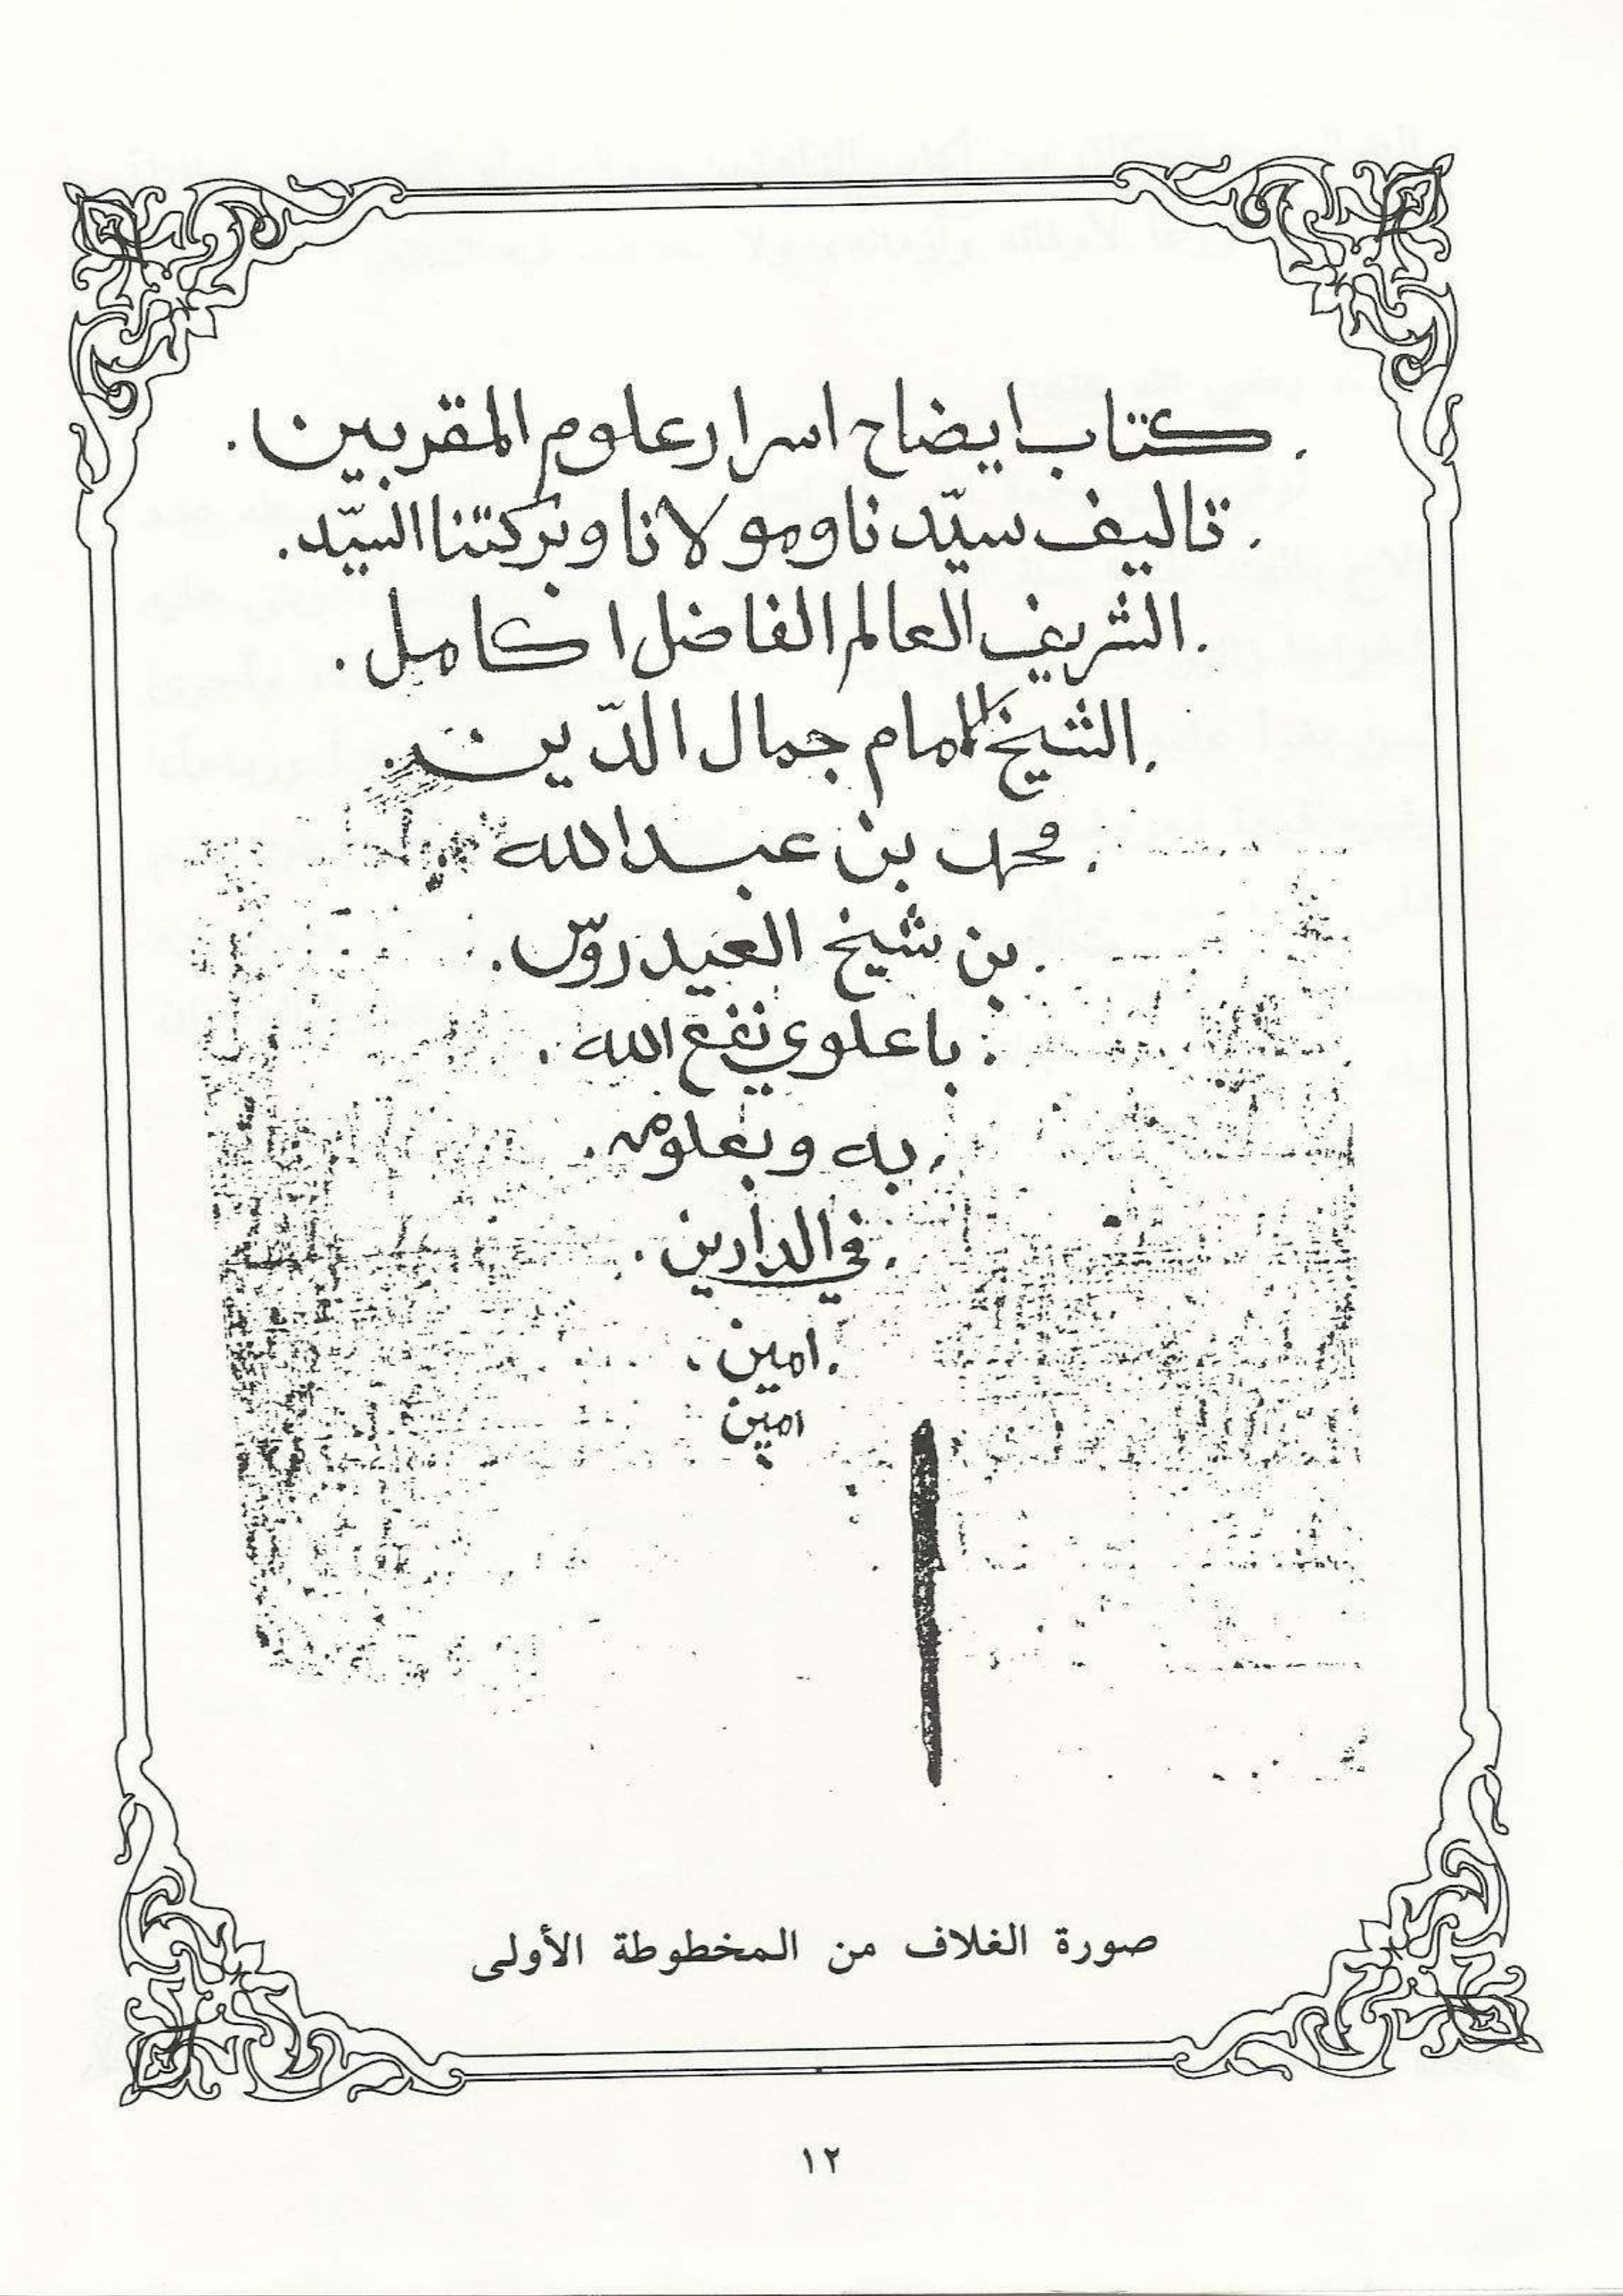 . كتاب ايضاح اسرار علوم المقربين .
. تاليف سيّدنا ومولانا وبركتنا السيّد .
. الشريف العالم الفاضل اكامل .
. الشيخ الامام جمال الدّين .
. محمد بن عبد الله
. بن شيخ العيدروس .
. باعلوي نفع الله .
. به وبعلومه .
. في الدارين .
. امين .
امين
صورة الغلاف من المخطوطة الأولى
١٢